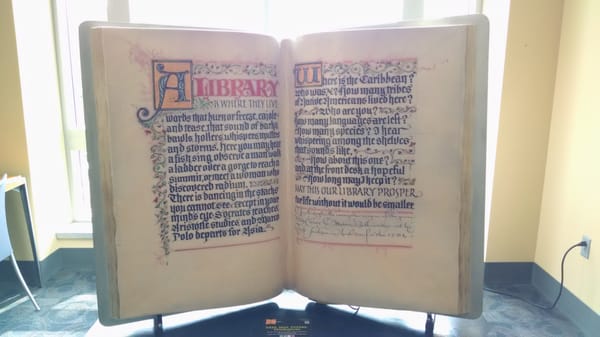 A LIBRARY
IS WHERE THEY LIVE
words that burn or freeze, cajole
and tease, that sound of barks
bawls, hollers, whispers, mutters
and storms. Here you may hear
a fish sing, observe a man
a ladder over a gorge to reach a
summit, or meet a woman who
discovered radium.
There is dancing in the stacks
you cannot see except in your
minds eye. Socrates teaches,
Aristotle studies and Marco
Polo departs for Asia.
Where is the Caribbean?
Who was x? How many tribes
of Native Americans lived here?
Who are you?
How many languages are left?
How many species? I hear
whispering among the shelves
that sounds like,
How about this one?
and at the front desk a hopeful
How long may I keep it?
MAY THIS OUR LIBRARY PROSPER
the life without it would be smaller